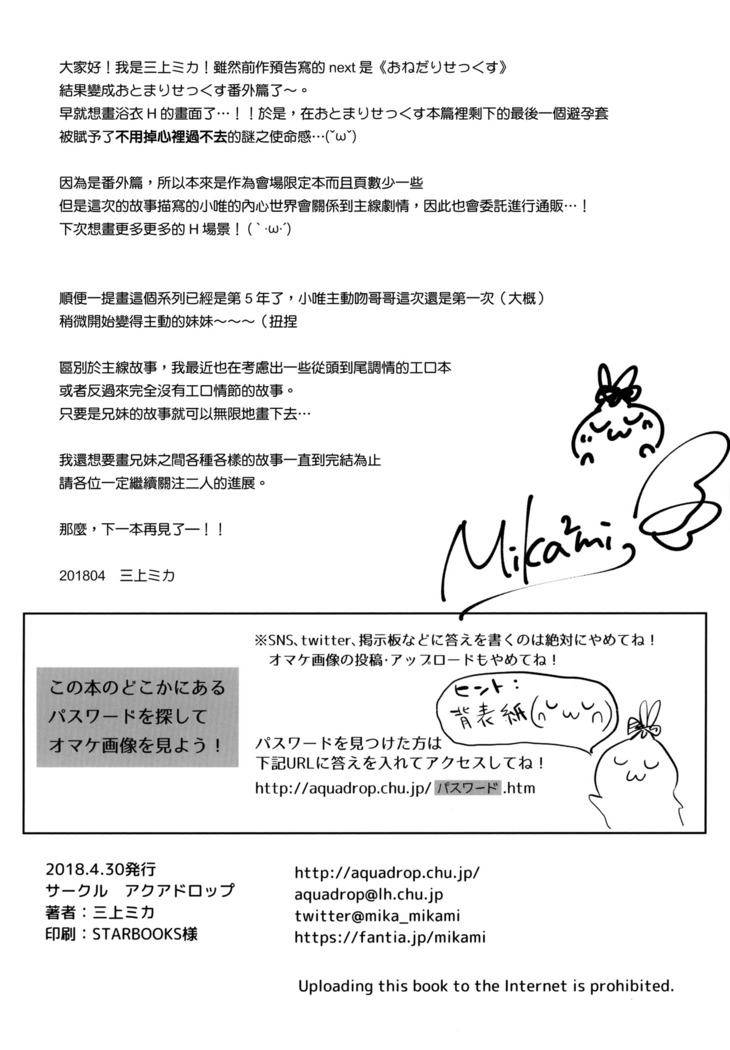 大家好！我是三上ミカ！雖然前作預告寫的 next 是《おねだりせっくす》
結果變成おとまりせっくす番外篇了～。
早就想畫浴衣 H 的畫面了…！！於是，在おとまりせっくす本篇裡剩下的最後一個避孕套
被賦予了不用掉心裡過不去的謎之使命感…(˘ω˘)
因為是番外篇，所以本來是作為會場限定本而且頁數少一些
但是這次的故事描寫的小唯的內心世界會關係到主線劇情，因此也會委託進行通販…！
下次想畫更多更多的 H 場景！(｀･ω･´)
順便一提畫這個系列已經是第 5 年了，小唯主動吻哥哥這次還是第一次（大概）
稍微開始變得主動的妹妹～～～（扭捏
區別於主線故事，我最近也在考慮出一些從頭到尾調情的工口本
或者反過來完全沒有工口情節的故事。
只要是兄妹的故事就可以無限地畫下去…
我還想要畫兄妹之間各種各樣的故事一直到完結為止
請各位一定繼續關注二人的進展。
那麼，下一本再見了一！！
Mika²mi
201804　三上ミカ
※SNS、twitter、掲示板などに答えを書くのは絶対にやめてね！
オマケ画像の投稿・アップロードもやめてね！
この本のどこかにある
パスワードを探して
オマケ画像を見よう！
ヒント：
背表紙(∩˘ω˘∩)
パスワードを見つけた方は
下記URLに答えを入れてアクセスしてね！
http://aquadrop.chu.jp/ パスワード .htm
2018.4.30発行
サークル　アクアドロップ
著者：三上ミカ
印刷：STARBOOKS様
http://aquadrop.chu.jp/
aquadrop@lh.chu.jp
twitter@mika_mikami
https://fantia.jp/mikami
Uploading this book to the Internet is prohibited.